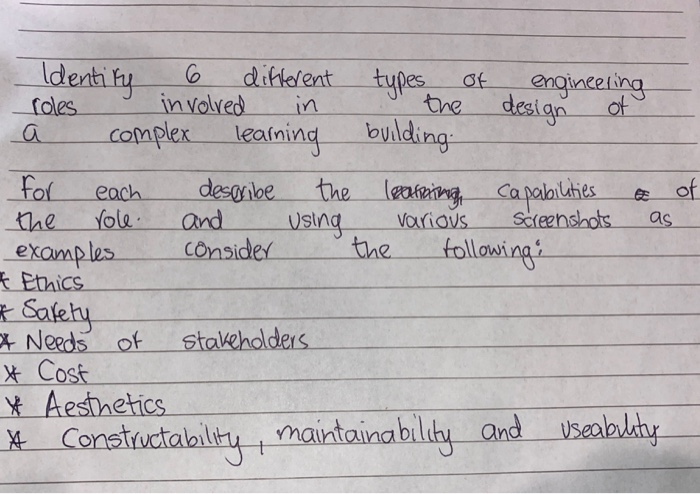 Identify 6 different types of engineering
roles involved in the design of
a complex learning building.
For each describe the capabilities of
the role. and using various screenshots as
examples consider the following:
* Ethics
* Safety
* Needs of stakeholders
* Cost
* Aesthetics
* Constructability, maintainability and useability